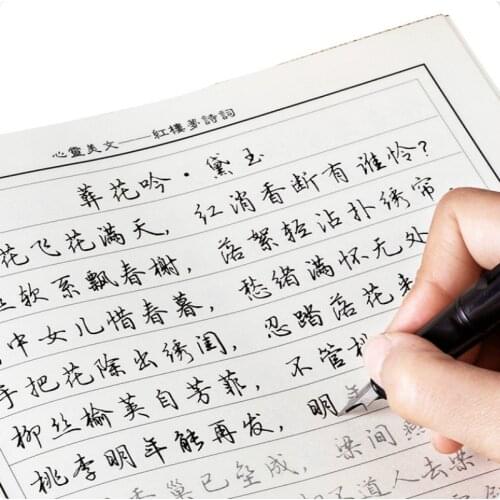 心靈美文——紅樓夢詩詞
葬花吟·黛玉
花飞花满天，红消香断有谁怜？
软系飘春榭，落絮轻沾扑绣帘，
中女儿惜春暮，愁绪满怀无处
手把花除出绣闺，忍踏落花来
柳丝榆英自芳菲，不管
桃李明年能再发，明
巢已垒成，梁间燕
不道人去梁